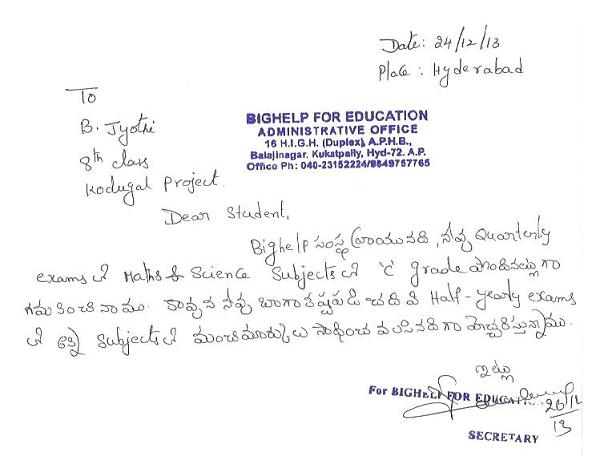 Date: 24/12/13
Place: Hyderabad
To
B. Jyothi
8th class
Kodugal Project.
BIGHELP FOR EDUCATION
ADMINISTRATIVE OFFICE
16 H.I.G.H. (Duplex), A.P.H.B.,
Balajinagar, Kukatpally, Hyd-72. A.P.
Office Ph: 040-23152224/9849757765
Dear Student,
Bighelp సంస్థ వ్రాయునది, నీవు Quarterly
exams లో Maths & Science Subjects లో 'C' grade పొందినట్లుగా
గమనించినాము. కావున నీవు బాగా కష్టపడి చదివి Half-yearly exams
లో అన్ని Subjects లో మంచి మార్కులు సాధించ వలసినదిగా హెచ్చరిస్తున్నాము.
ఇట్లు
For BIGHELP FOR EDUCATION
26/12
13
SECRETARY